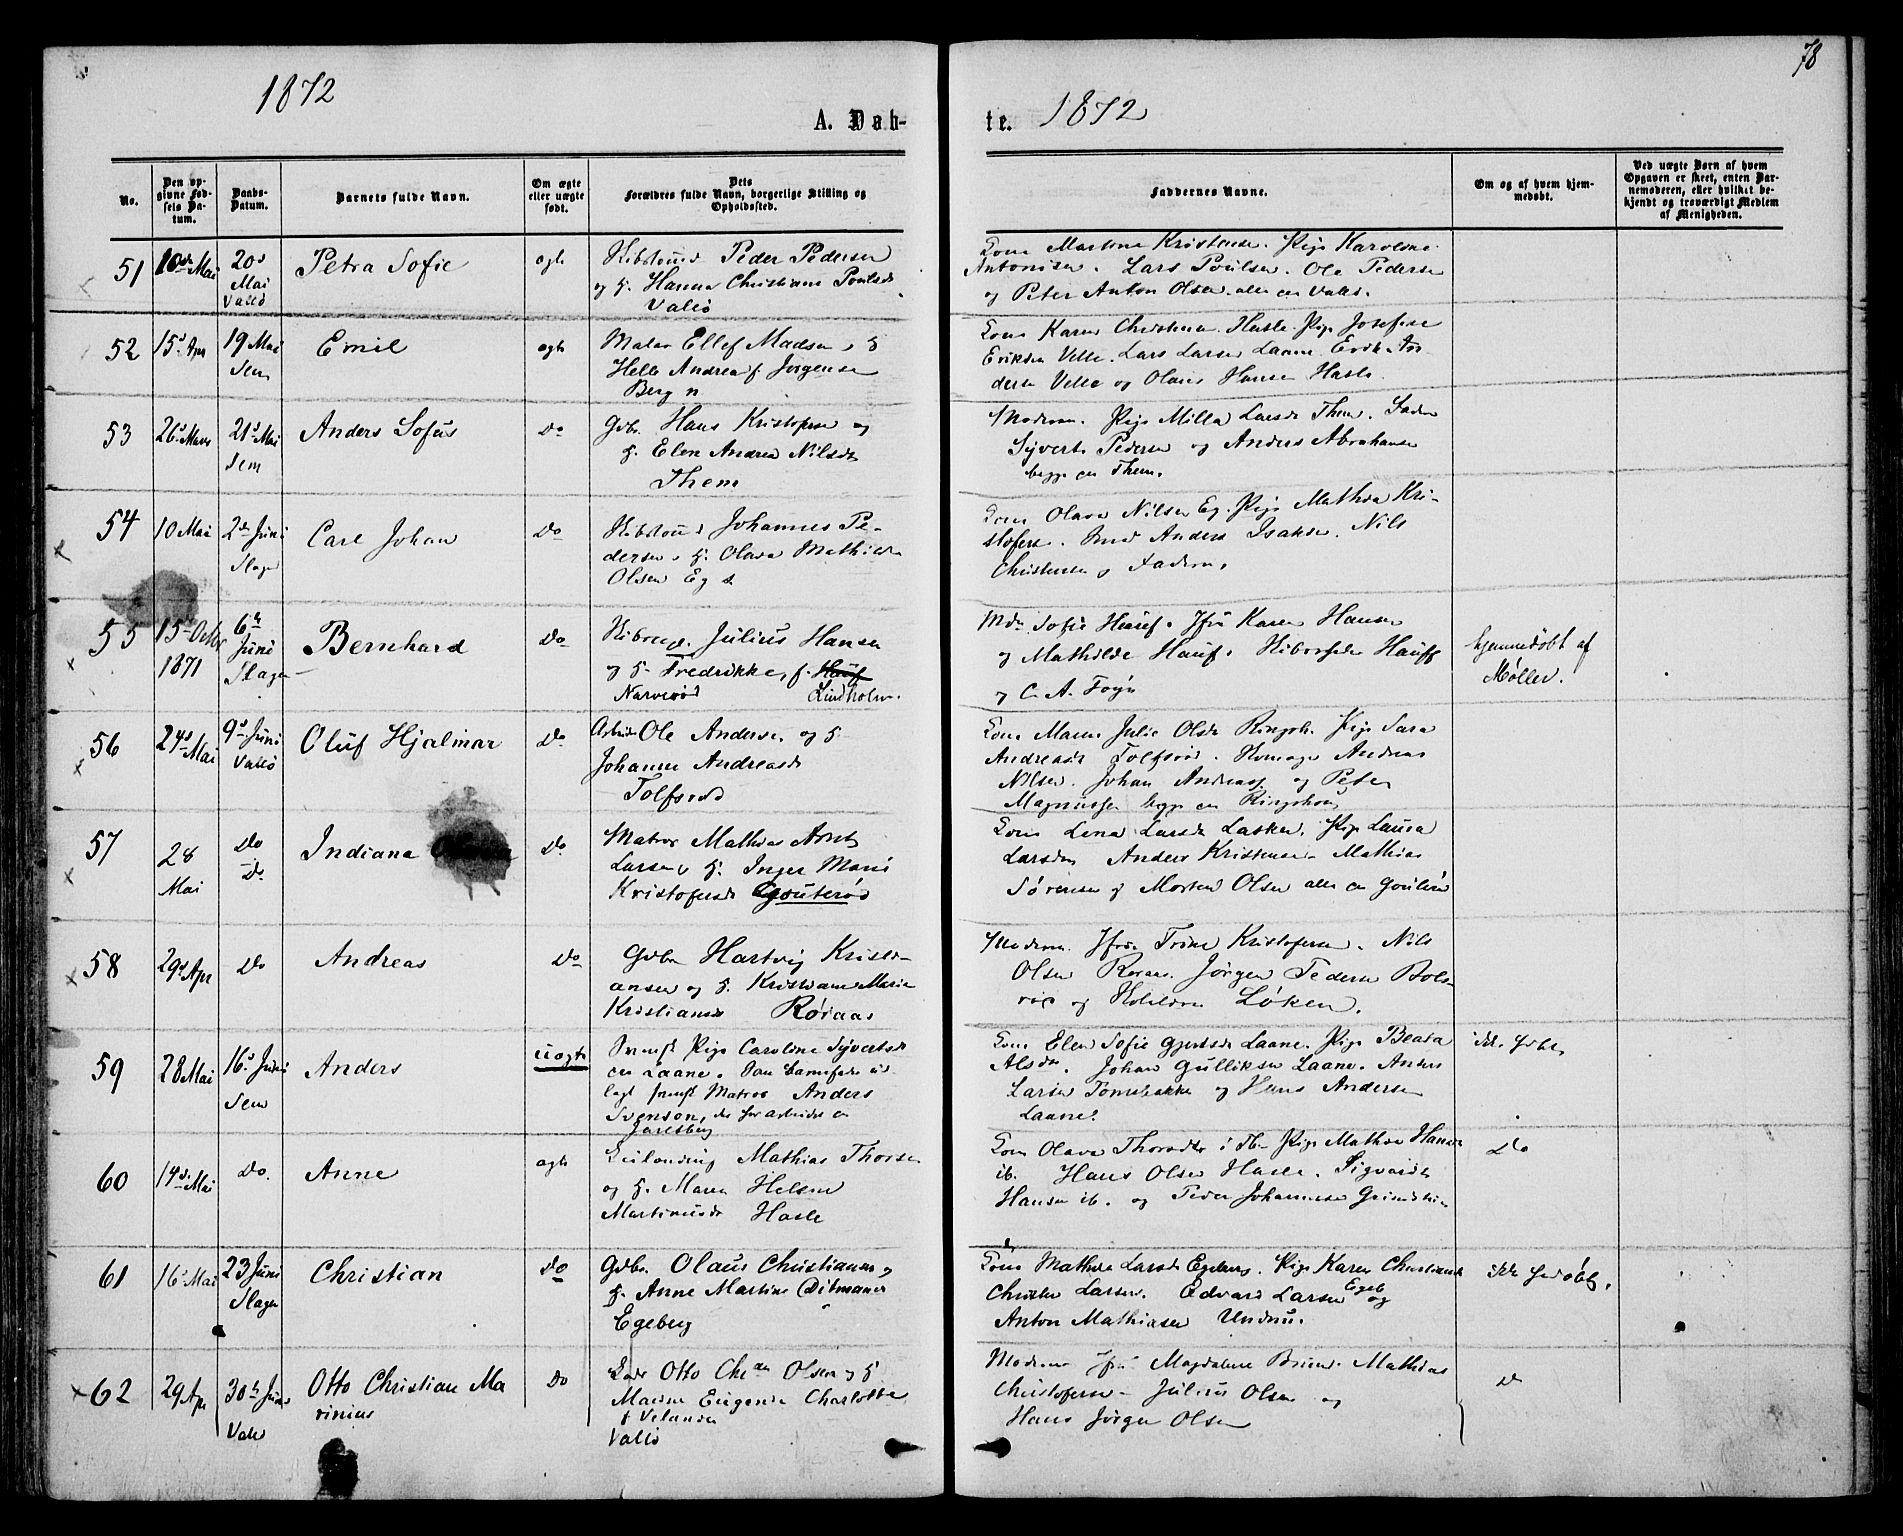 78
1872
A. Døb-
te.
1872
No.
Den op-
givne Fød-
sels Da-
tum.
Daabs-
Datum.
Barnets fulde Navn.
Om ægte
eller uægte
født.
Dets
Forældres fulde Navn, borgerlige Stilling og
Opholdssted.
Faddernes Navne.
Om og af hvem hjem-
medøbt.
Ved uægte Børn af hvem
Opgaven er skeet, enten Bar-
nemoderen, eller hvilket be-
kjendt og troværdigt Medlem
af Menigheden.
51
10 Mai
20
Mai
Vallö
Petra Sofie
ægte
Peder Pedersen
og H. Hanna Christiane Poulsd
Vallö
Kone Martine Kristense. Pige Karoline
Antonisen. Lars Poulsen. Ole Pedersen
og Peter Anton Olsen alle en Vallö.
52
15 Apr
19 Mai
Sem
Emil
ægte
Matros Ellef Madsen og H
Helle Andrea f. Jørgensen
Berg n
Kone Karen Christina Hasle. Pige Josefine
Eriksen Velle. Lars Larsen Laane. Erik An-
dersen Velle og Olaus Hansen Hasle
53
26 Marts
21 Mai
Sem
Anders Sofus
Do
Gdbr. Hans Kristofersen og
H. Elen Andrea Nilsdt
Them
Moderen. Pige Milla Larsdt Them. Faderen
Syvert Pedersen og Anders Abrahamsen
begge en Them.
54
10 Mai
2 Juni
Slagen
Carl Johan
Do
Johannes Pe-
dersen, H. Olava Mathilde
Olsen Eg s.
Kone Olava Nilsen Eg. Pige Mathea Kri-
stofersen. Anders Isaksen. Nils
Christensen og Faderen.
55
15 Octbr
1871
6
Juni
Slagen
Bernhard
Do
Julius Hansen
og H. Fredrikke, f. Hauf
Narverød Lindholm.
Md Sofie Hauf. Jfr Karen Hansen
og Mathilde Hauf. Hauff
og C. A. Foyn
hjemmedøbt af
Møller.
56
24 Mai
9 Juni
Vallö
Oluf Hjalmar
Do
Arbeider Ole Andersen og H.
Johanne Andreasdt
Tolfsrød
Kone Maren Julie Olsdt Ringsh. Pige Sara
Andreasdt Tolfsrød. Andreas
Nilsen. Johan Andreasen og Peter
Magnussen begge en Ringshoug
57
28
Mai
Do
Do
Indiana
Do
Matros Mathias Arnt
Larsen, H. Inger Marie
Kristofersdt Gouterød
Kone Lena Larsdt Lasken. Pige Laura
Larsdtr Anders Kristensen. Mathias
Sørensen og Morten Olsen alle en Gouterød
58
29 Apr
Do
Andreas
Do
Gdbr Hartvig Kristi-
ansen og H. Kristiane Marie
Kristiansdt Røraas
Moderen. Jfr. Trine Kristofersen. Nils
Olsen Røraas. Jørgen Pedersen Bols-
røe og Løken.
59
28 Mai
16 Juni
Sem
Anders
uægte
Svensk Pige Caroline Syvertsdt
en Laane. Som Barnefader ud-
lagt svensk Matros Anders
Svenson, der har arbeidet en
Jarlsberg
Kone Elen Sofie Gjertsdt Laane. Pige Beata
Alsdt. Johan Gulliksen Laane. Anders
Larsen Tomsbakke og Hans Andersen
Laane.
ikke hjdøbt
60
14 Mai
Do.
Anne
ægte
Mathias Thorsen
og H. Maren Helene
Martinusdt Hasle
Kone Olava Thorsdtr i Pige Mathea Hansen
ib. Hans Olsen Hasle. Sigvardt
Hansen ib. og Peder Johannesen
Do
61
16 Mai
23 Juni
Slagen
Christian
Do
Gdbr. Olaus Christiansen og
H. Anne Martine Ditmansen
Egeberg
Kone Mathea Larsdt Egeberg. Pige Karen Christiansdt
Christen Larsen. Edvard Larsen Egeb og
Anton Mathiasen Undrum.
ikke hjdøbt.
62
29 Apr
30 Juni
Vallö
Otto Christian Ma
rinius
Do
Otto Chr Olsen og H
Maren Eugenie Charlotte
f Velandsen
Vallö
Moderen Jfr Magdalene Bruun. Mathias
Christofersen. Julius Olsen og
Hans Jørgen Olsen
Do